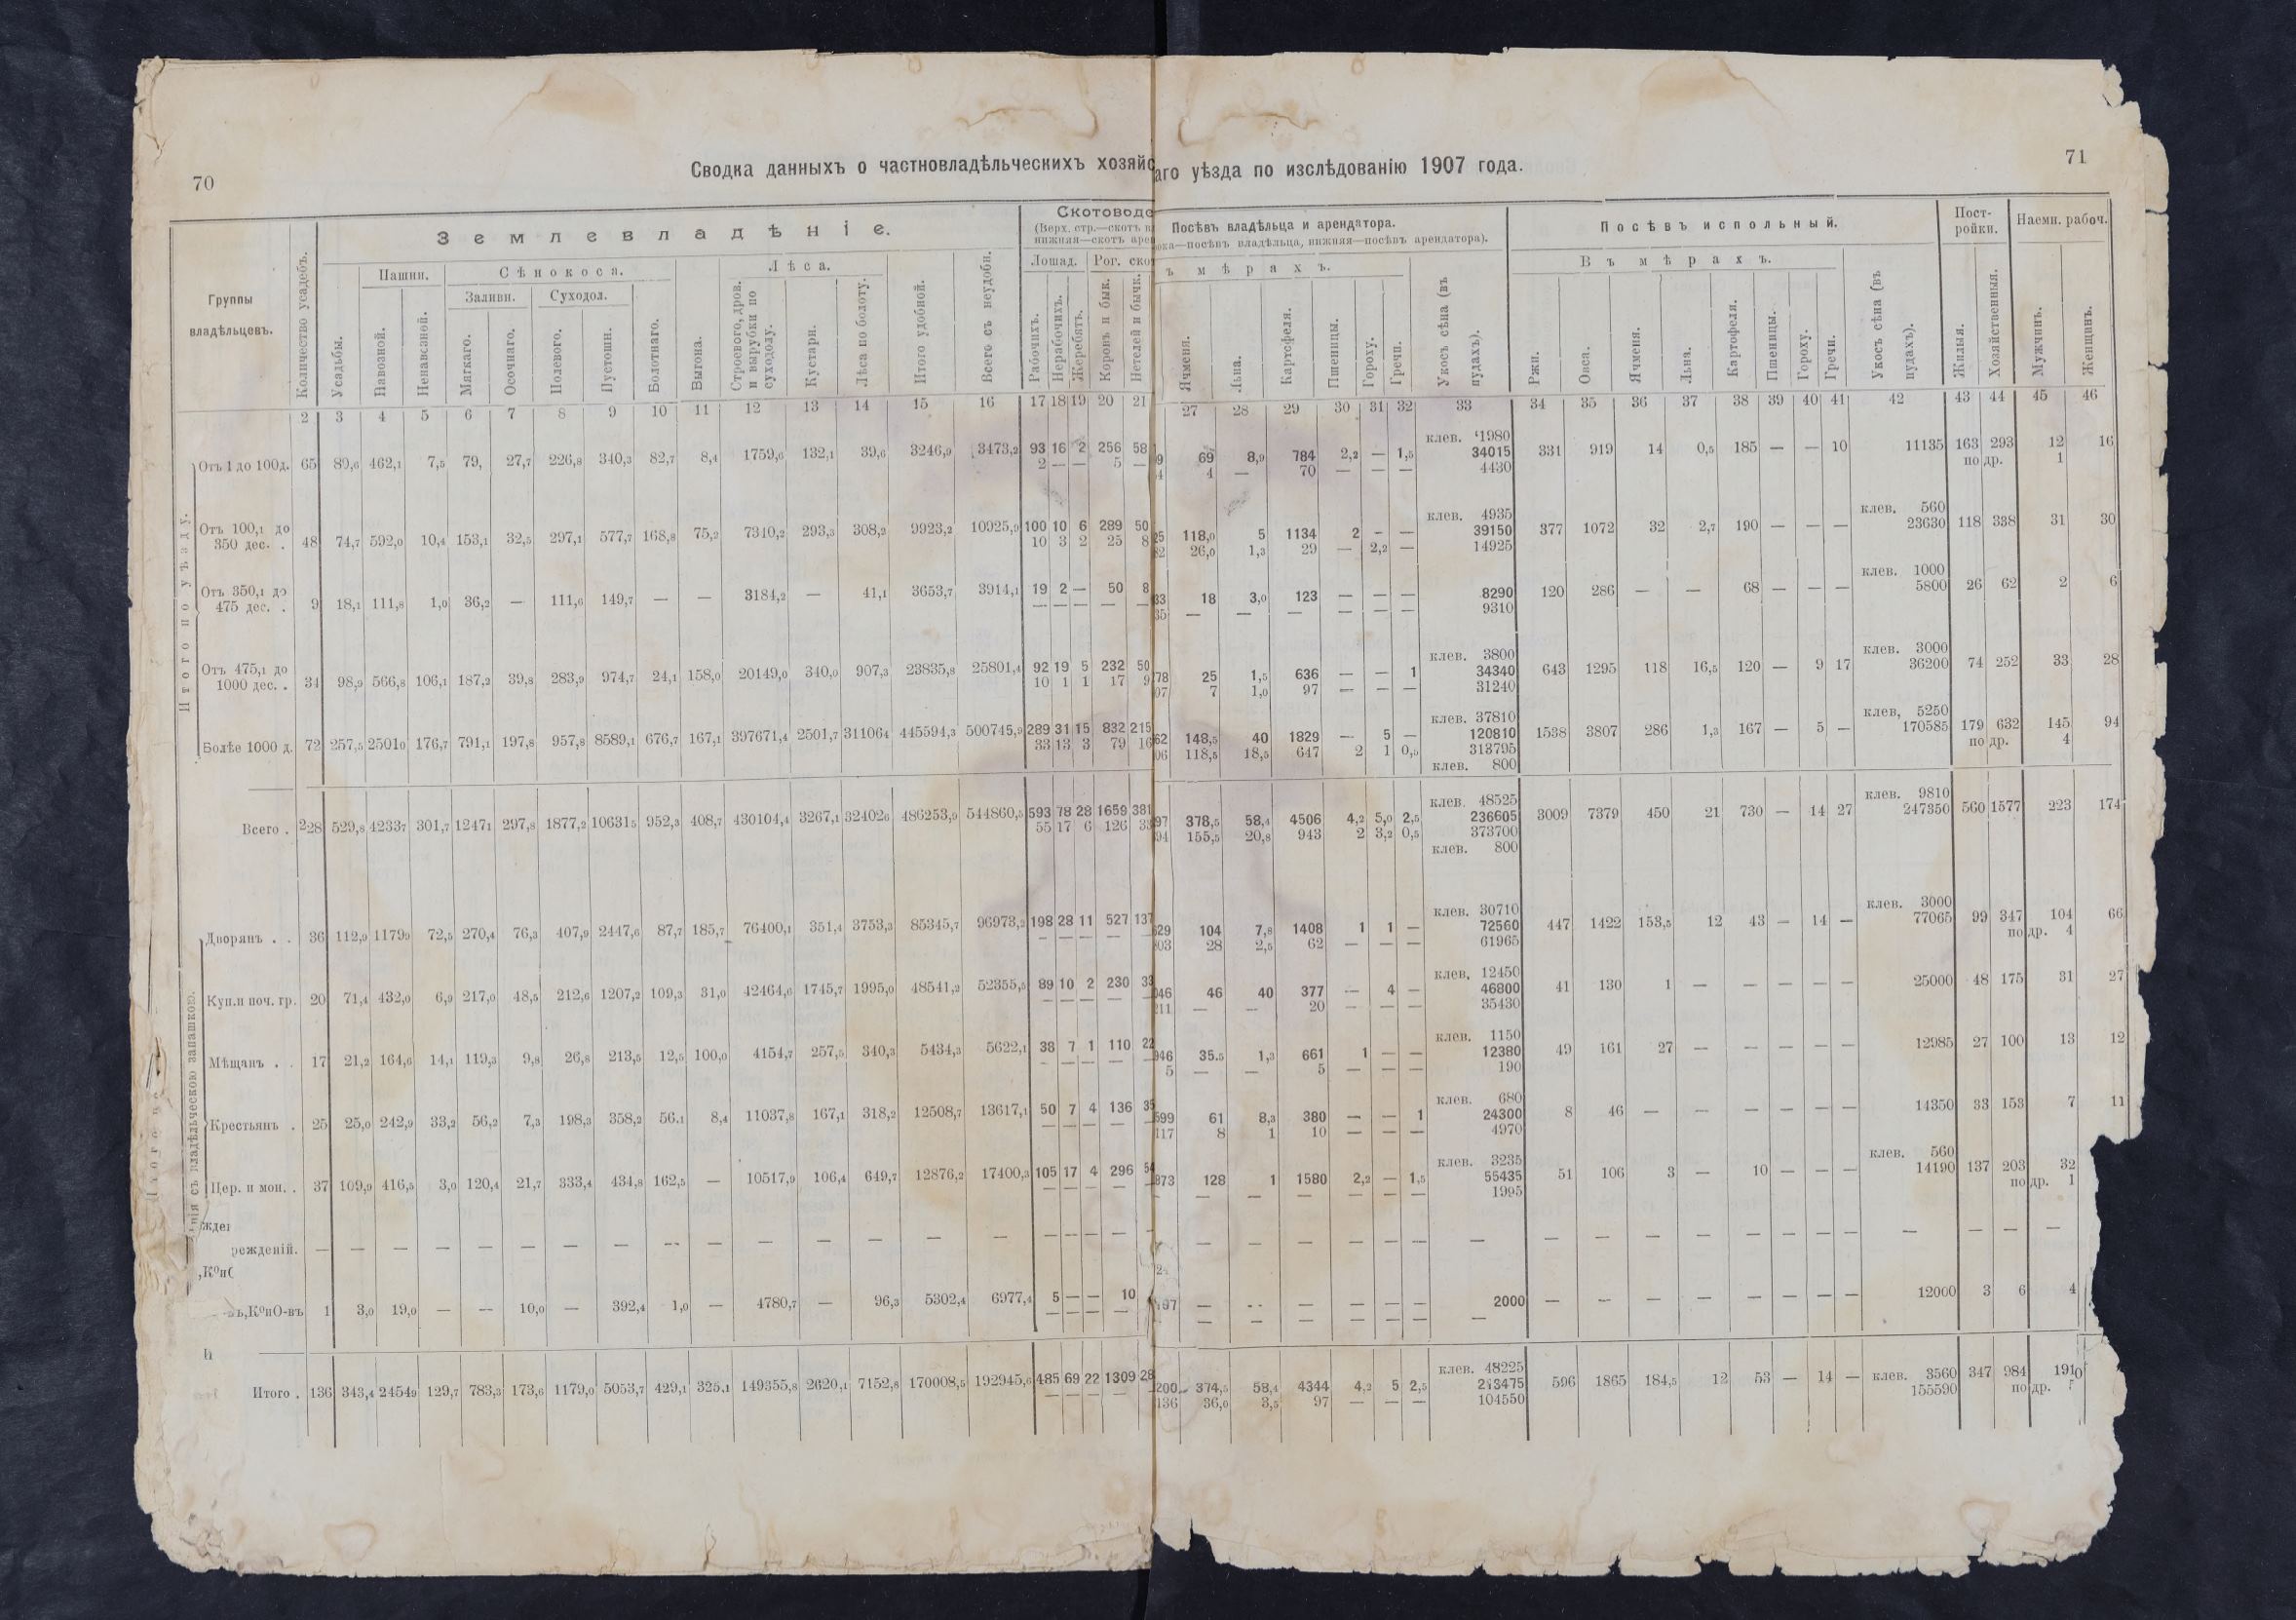 70
71
Сводка данныхъ о частновладѣльческихъ хозяйс
аго уѣзда по изслѣдованію 1907 года.
Группы владѣльцевъ.
Количество усадебъ.
Землевладѣніе.
Усадьбы.
Пашни.
Навозной.
Ненавозной.
Сѣнокоса.
Заливн.
Мягкаго.
Осочнаго.
Суходол.
Полевого.
Пустошн.
Болотнаго.
Выгона.
Лѣса.
Строевого, дров. и вырубки по суходолу.
Кустарн.
Лѣса по болоту.
Итого удобной.
Всего съ неудобн.
Скотоводс
(Верх. стр.—скотъ в
нижняя—скотъ арен
Лошад.
Рабочихъ.
Нерабочихъ.
Жеребятъ.
Рог. ско
Коровъ и бык.
Нетелей и бычк.
Посѣвъ владѣльца и арендатора.
ока—посѣвъ владѣльца, нижняя—посѣвъ арендатора).
ъ мѣрахъ.
Ячменя.
Льна.
Картофеля.
Пшеницы.
Гороху.
Гречи.
Укосъ сѣна (въ пудахъ).
Посѣвъ испольный.
Въ мѣрахъ.
Ржи.
Овса.
Ячменя.
Льна.
Картофеля.
Пшеницы.
Гороху.
Гречи.
Укосъ сѣна (въ пудахъ).
Постройки.
Жилыя.
Хозяйственныя.
Наемн. рабоч.
Мужчинъ.
Женщинъ.
2 3 4 5 6 7 8 9 10 11 12 13 14 15 16 17 18 19 20 21 27 28 29 30 31 32 33 34 35 36 37 38 39 40 41 42 43 44 45 46
Итого по уѣзду.
клев. 1980
Отъ 1 до 100д. 65 89,6 462,1 7,5 79, 27,7 226,8 340,3 82,7 8,4 1759,6 132,1 39,6 3246,9 3473,2 93 16 2 256 58 69 8,9 784 2,2 — 1,5 34015 331 919 14 0,5 185 — — 10 11135 163 293 12 16
2 — — 5 — 4 — 70 — — — 4430 по др. 1
клев. 4935 клев. 560
Отъ 100,1 до 350 дес. . 48 74,7 592,0 10,4 153,1 32,5 297,1 577,7 168,8 75,2 7340,2 293,3 308,2 9923,2 10925,9 100 10 6 289 50 118,0 5 1134 2 — — 39150 377 1072 32 2,7 190 — — — 23630 118 338 31 30
10 3 2 25 8 26,0 1,3 29 — 2,2 — 14925
клев. 1000
Отъ 350,1 до 475 дес. . 9 18,1 111,8 1,0 36,2 — 111,6 149,7 — — 3184,2 — 41,1 3653,7 3914,1 19 2 — 50 8 33 18 3,0 123 — — — 8290 120 286 — — 68 — — — 5800 26 62 2 6
— — — — — 35 — — — — — — 9310
клев. 3800 клев. 3000
Отъ 475,1 до 1000 дес. . 34 98,9 566,8 106,1 187,2 39,8 283,9 974,7 24,1 158,0 20149,0 340,0 907,3 23835,8 25801,4 92 19 5 232 50 78 25 1,5 636 — — 1 34340 643 1295 118 16,5 120 — 9 17 36200 74 252 33 28
10 1 1 17 9 07 7 1,0 97 — — — 31240
клев. 37810 клев. 5250
Болѣе 1000 д. 72 257,5 25010 176,7 791,1 197,8 957,8 8589,1 676,7 167,1 397671,4 2501,7 311064 445594,3 500745,9 289 31 15 832 215 62 148,5 40 1829 — 5 — 120810 1538 3807 286 1,3 167 — 5 — 170585 179 632 145 94
33 13 3 79 16 06 118,5 18,5 647 2 1 0,5 313795 по др. 4
клев. 800
клев. 48525 клев. 9810
Всего . 228 529,8 42337 301,7 12471 297,8 1877,2 106315 952,3 408,7 430104,4 3267,1 324026 486253,9 544860,5 593 78 28 1659 381 97 378,5 58,4 4506 4,2 5,0 2,5 236605 3009 7379 450 21 730 — 14 27 247350 560 1577 223 174
55 17 6 126 33 94 155,5 20,8 943 2 3,2 0,5 373700
клев. 800
нія съ владѣльческою запашкою.
клев. 30710 клев. 3000
Дворянъ . . 36 112,9 11799 72,5 270,4 76,3 407,9 2447,6 87,7 185,7 76400,1 351,4 3753,3 85345,7 96973,2 198 28 11 527 137 629 104 7,8 1408 1 1 — 72560 447 1422 153,5 12 43 — 14 — 77065 99 347 104 66
— — — — — 03 28 2,5 62 — — — 61965 по др. 4
клев. 12450
Куп.и поч. гр. 20 71,4 432,0 6,9 217,0 48,5 212,6 1207,2 109,3 31,0 42464,6 1745,7 1995,0 48541,2 52355,5 89 10 2 230 33 46 46 40 377 — 4 — 46800 41 130 1 — — — — — 25000 48 175 31 27
— — — — — 11 — — 20 — — — 35430
клев. 1150
Мѣщанъ . . 17 21,2 164,6 14,1 119,3 9,8 26,8 213,5 12,5 100,0 4154,7 257,5 340,3 5434,3 5622,1 38 7 1 110 22 946 35.5 1,3 661 1 — — 12380 49 161 27 — — — — — 12985 27 100 13 12
— — — — — 5 — — 5 — — — 190
клев. 680
Крестьянъ . 25 25,0 242,9 33,2 56,2 7,3 198,3 358,2 56.1 8,4 11037,8 167,1 318,2 12508,7 13617,1 50 7 4 136 35 599 61 8,3 380 — — 1 24300 8 46 — — — — — — 14350 33 153 7 11
— — — — — 117 8 1 10 — — — 4970
клев. 3235 клев. 560
Цер. и мон. . 37 109,9 416,5 3,0 120,4 21,7 333,4 434,8 162,5 — 10517,9 106,4 649,7 12876,2 17400,3 105 17 4 296 54 873 128 1 1580 2,2 — 1,5 55435 51 106 3 — 10 — — — 14190 137 203 32
— — — — — — — — — — — 1995 по др. 1
режденій. — — — — — — — — — — — — — — — — — — — — — — — — — — — — — — — — — — — — — — —
ъ,КºиО-въ 1 3,0 19,0 — — 10,0 — 392,4 1,0 — 4780,7 — 96,3 5302,4 6977,4 5 — — 10 197 — — — — — — 2000 — — — — — — — — 12000 3 6 4
— — — — — — — — — — —
клев. 48225
Итого . 136 343,4 24549 129,7 783,3 173,6 1179,0 5053,7 429,1 325,1 149355,8 2620,1 7152,8 170008,5 192945,6 485 69 22 1309 28 200 374,5 58,4 4344 4,2 5 2,5 213475 596 1865 184,5 12 53 — 14 — клев. 3560 347 984 191
— — — — 136 36,0 3,5 97 — — — 104550 155590 по др.